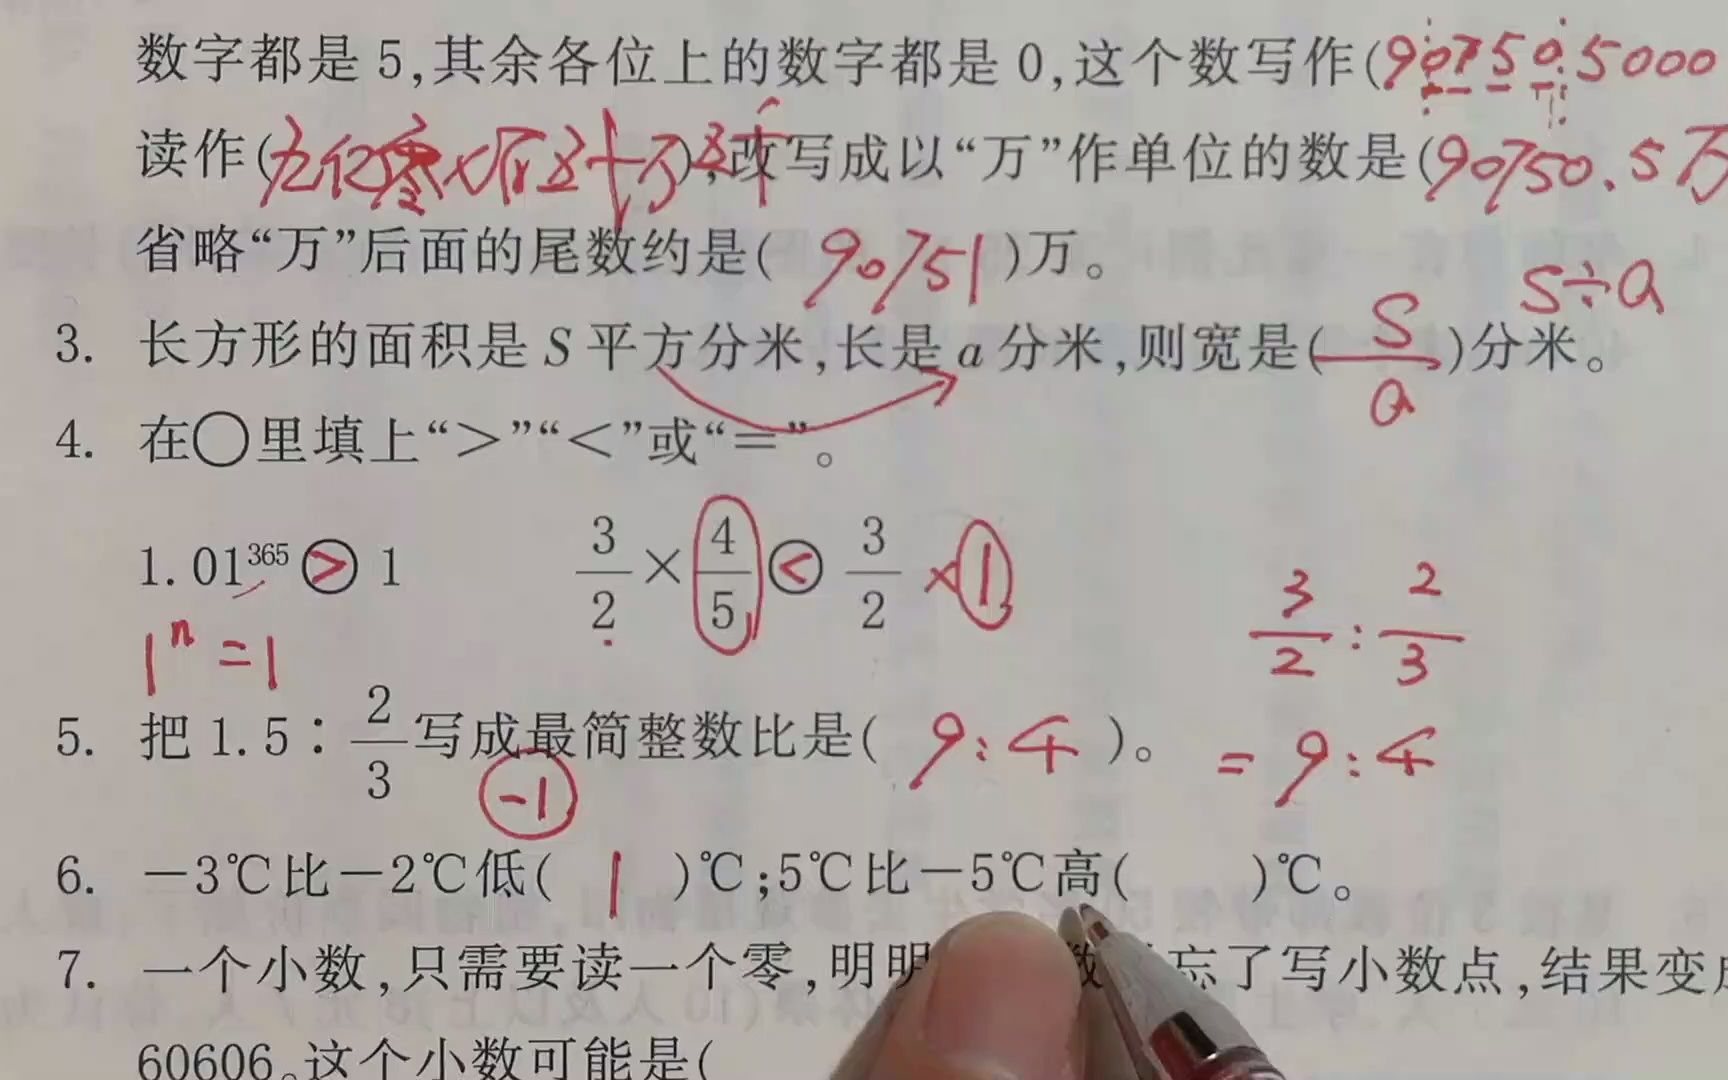 数字都是 5,其余各位上的数字都是 0,这个数写作(907505000
读作(九亿零七百五十万五千),改写成以“万”作单位的数是(90750.5万
省略“万”后面的尾数约是( 90751 )万。
S÷a
3. 长方形的面积是 S 平方分米,长是 a 分米,则宽是( S/a )分米。
4. 在○里填上“>”“<”或“=”。
1.01³⁶⁵ > 1 3/2 × 4/5 < 3/2 ×1
1ⁿ =1 3/2 : 2/3
5. 把 1.5∶2/3 写成最简整数比是( 9:4 )。 = 9:4
-1
6. -3℃比-2℃低( 1 )℃;5℃比-5℃高( )℃。
7. 一个小数,只需要读一个零,明明 忘了写小数点,结果变
60606。这个小数可能是(